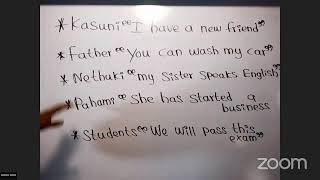 * Kasuni "I have a new friend"
* Father "You can wash my car"
* Nethuki "my sister speaks English"
* Pahami "She has started a
business"
* Students "We will pass this
exam"
zoom